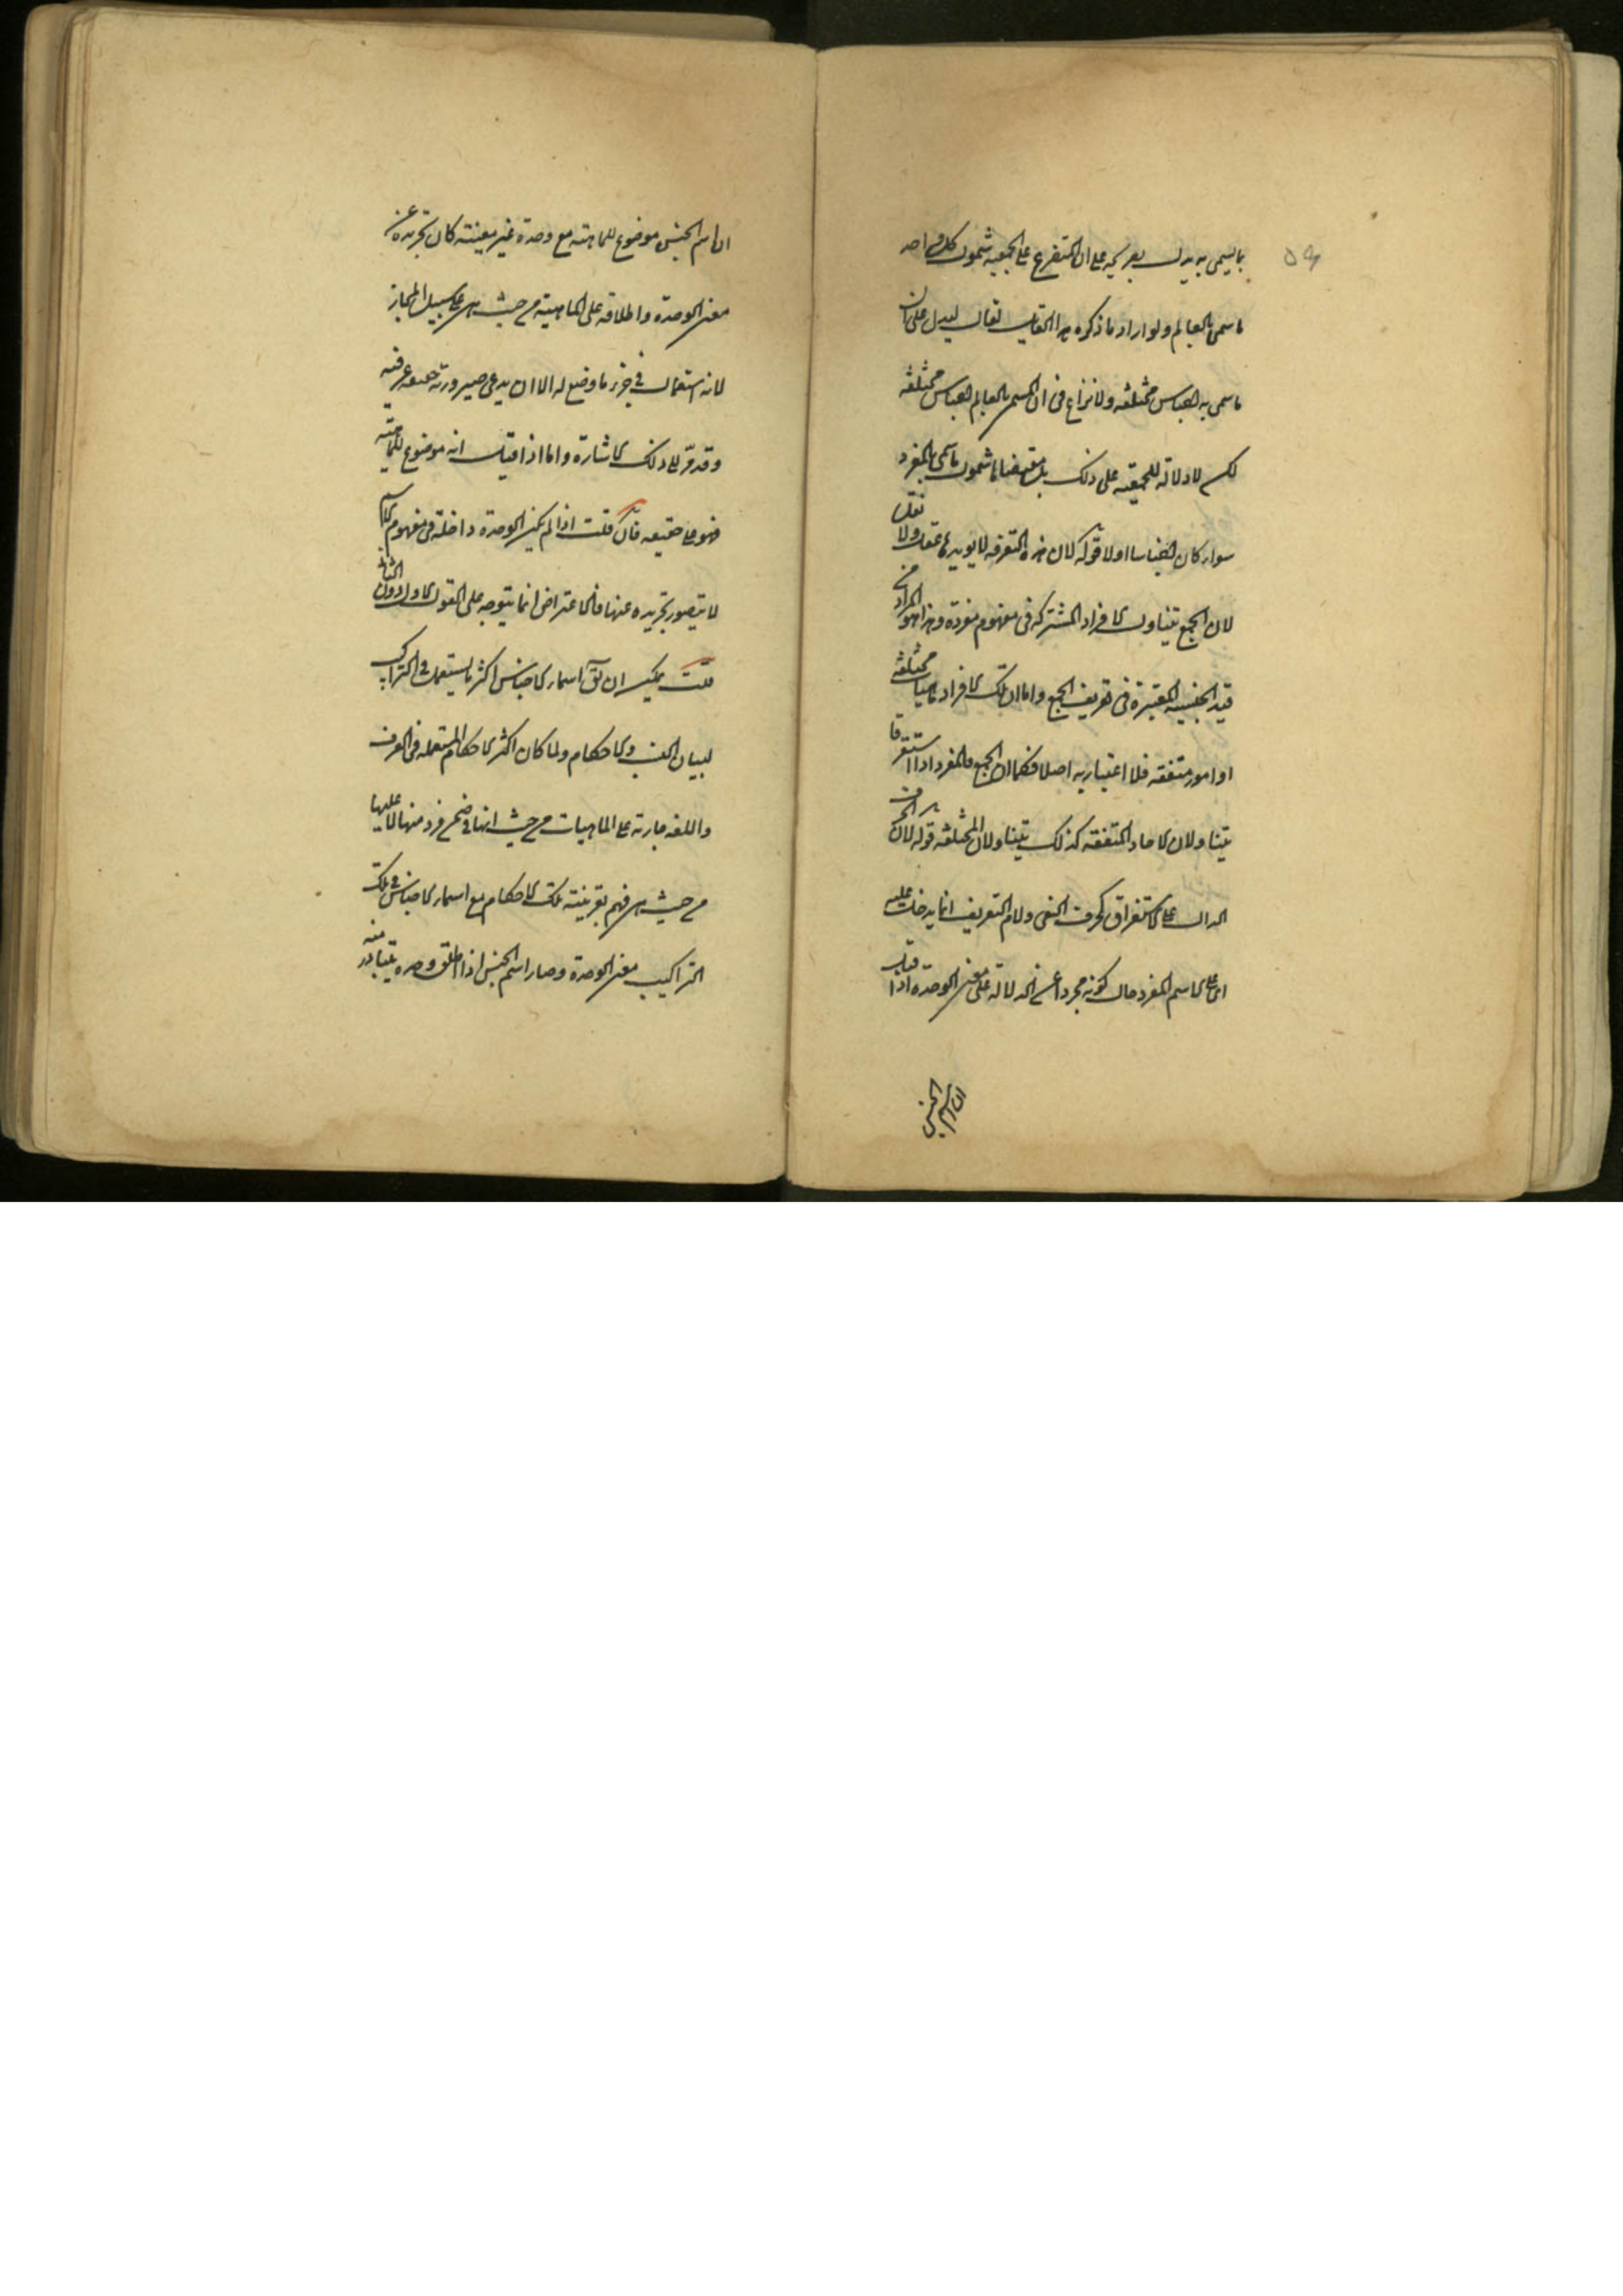 مما يسمى به يدل بصريحه على ان المتفرع على الجمعية شمول كل واحد
ما سمى بالعالم ولو اراد ما ذكره هذا القايل لقال ليدل على ان
ما سمى به اجناس مختلفة ولا نزاع فى ان المسمى بالعالم اجناس مختلفة
لكن لا دلالة للجمعية على ذلك بل مقتضاها شمول ما سمى بالمفرد
سواء كان اجناسا اولا قوله لان هذه التفرقة لا يويدها عقل ولا نقل
لان الجمع يتناول الافراد المشتركة فى مفهوم مفرده وهذا هو المراد من
قيد الجنسية المعتبرة فى تعريف الجمع واما ان تلك الافراد ماهيات مختلفة
او امور متفقة فلا اعتبار به اصلا فكما ان الجمع والمفرد اذا استغرقا
يتناولان الاحاد المتفقة كذلك يتناولان المختلفة قوله لان الحرف
الدال على الاستغراق كحرف النفى ولام التعريف انما يدخل عليه
اى على الاسم المفرد حال كونه مجردا عن الدلالة على معنى الوحدة اذا قيل
ان اسم الجنس
ان اسم الجنس موضوع للماهية مع وحدة غير معينة كان تجريده عن
معنى الوحدة واطلاقه على الماهية من حيث هى على سبيل المجاز
لانه استعمال فى جزء ما وضع له الا ان يدعى صيرورته حقيقة عرفية
وقد مر الى ذلك الاشارة واما اذا قيل انه موضوع للماهية
فهو على حقيقته فان قلت اذا لم يكن الوحدة داخلة فى مفهوم الاسم
لا يتصور تجريده عنها فالاعتراض انما يتوجه على القول الاول دون الثانى
قلت يمكن ان يق اسماء الاجناس اكثر ما يستعمل فى التراكيب
لبيان النسب والاحكام ولما كان اكثر الاحكام المستعملة فى العرف
واللغة جارية على الماهيات من حيث انها فى ضمن فرد منها لا عليها
من حيث هى فهم بقرينة تلك الاحكام مع اسماء الاجناس فى تلك
التراكيب معنى الوحدة وصار اسم الجنس اذا اطلق وحده يتبادر منه